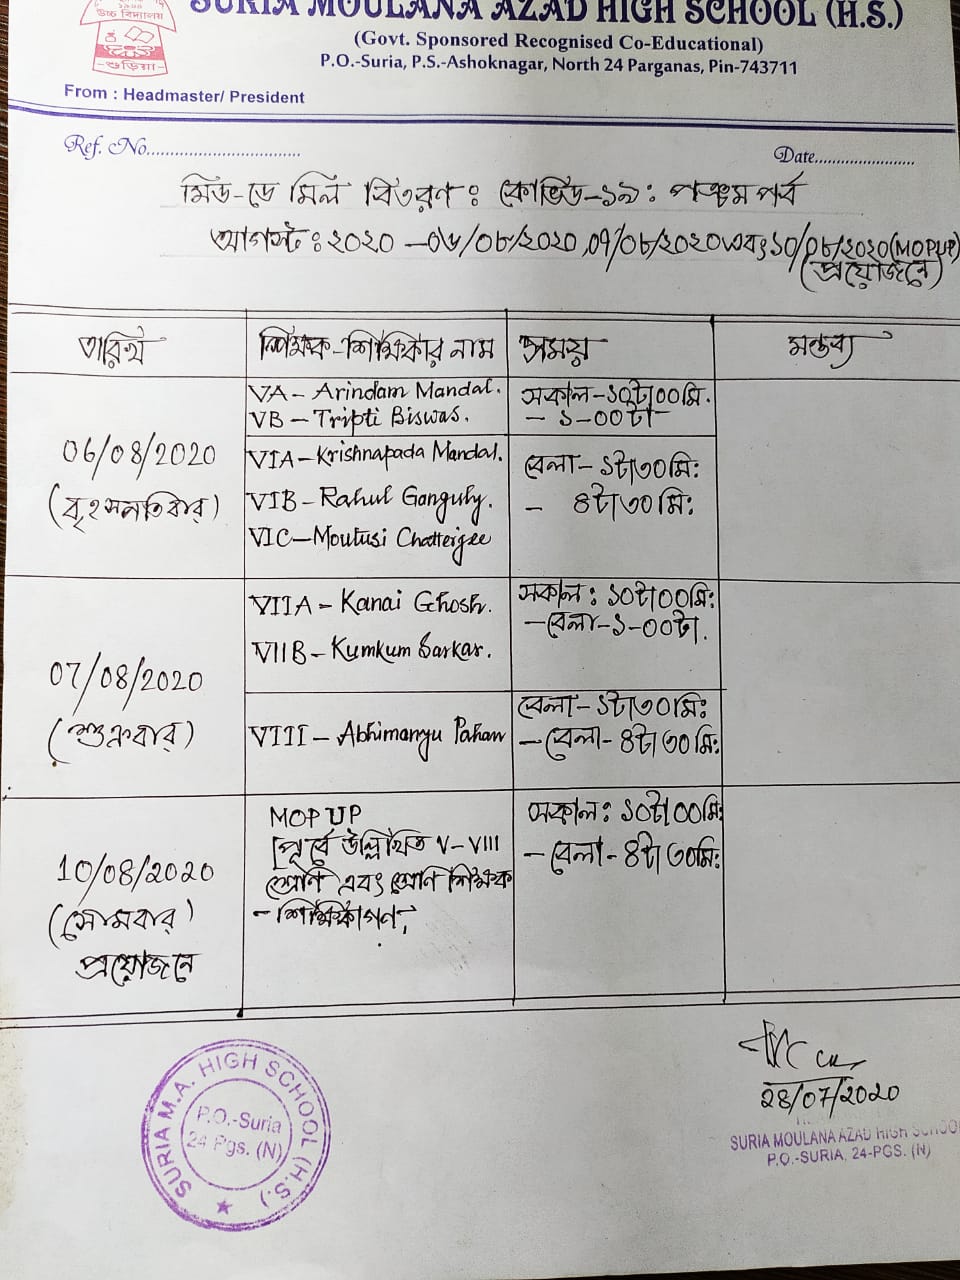 উচ্চ বিদ্যালয়
শুড়িয়া
SURIA MOULANA AZAD HIGH SCHOOL (H.S.)
(Govt. Sponsored Recognised Co-Educational)
P.O.-Suria, P.S.-Ashoknagar, North 24 Parganas, Pin-743711
From : Headmaster/ President
Ref. No.................................
Date.....................
মিড-ডে মিল বিতরণ : কোভিড-১৯ : পঞ্চম পর্ব
আগস্ট : ২০২০ -০৬/০৮/২০২০, ০৭/০৮/২০২০ এবং ১০/০৮/২০২০ (MOPUP)
(প্রয়োজনে)
তারিখ
শিক্ষক-শিক্ষিকার নাম
সময়
মন্তব্য
06/08/2020
(বৃহস্পতিবার)
VA - Arindam Mandal.
VB - Tripti Biswas.
সকাল-১০টা০০মি.
- ১-০০টা
VIA - Krishnapada Mandal.
VIB - Rahul Ganguly.
VIC - Moutusi Chatterjee
বেলা- ১টা৩০মি:
- ৪টা৩০মি:
07/08/2020
(শুক্রবার)
VIIA - Kanai Ghosh.
VIIB - Kumkum Sarkar.
সকাল : ১০টা০০মি:
-বেলা-১-০০টা.
VIII - Abhimanyu Pahan
বেলা- ১টা৩০মি:
-বেলা- ৪টা৩০মি:
10/08/2020
(সোমবার)
প্রয়োজনে
MOP UP
পূর্বে উল্লিখিত V-VIII
শ্রেণি এবং শ্রেণি শিক্ষক
- শিক্ষিকাগণ;
সকাল : ১০টা০০মি:
-বেলা- ৪টা৩০মি:
SURIA M.A. HIGH SCHOOL (H.S.)
P.O.-Suria
24 Pgs. (N)
28/07/2020
SURIA MOULANA AZAD HIGH SCHOOL
P.O.-SURIA, 24-PGS. (N)